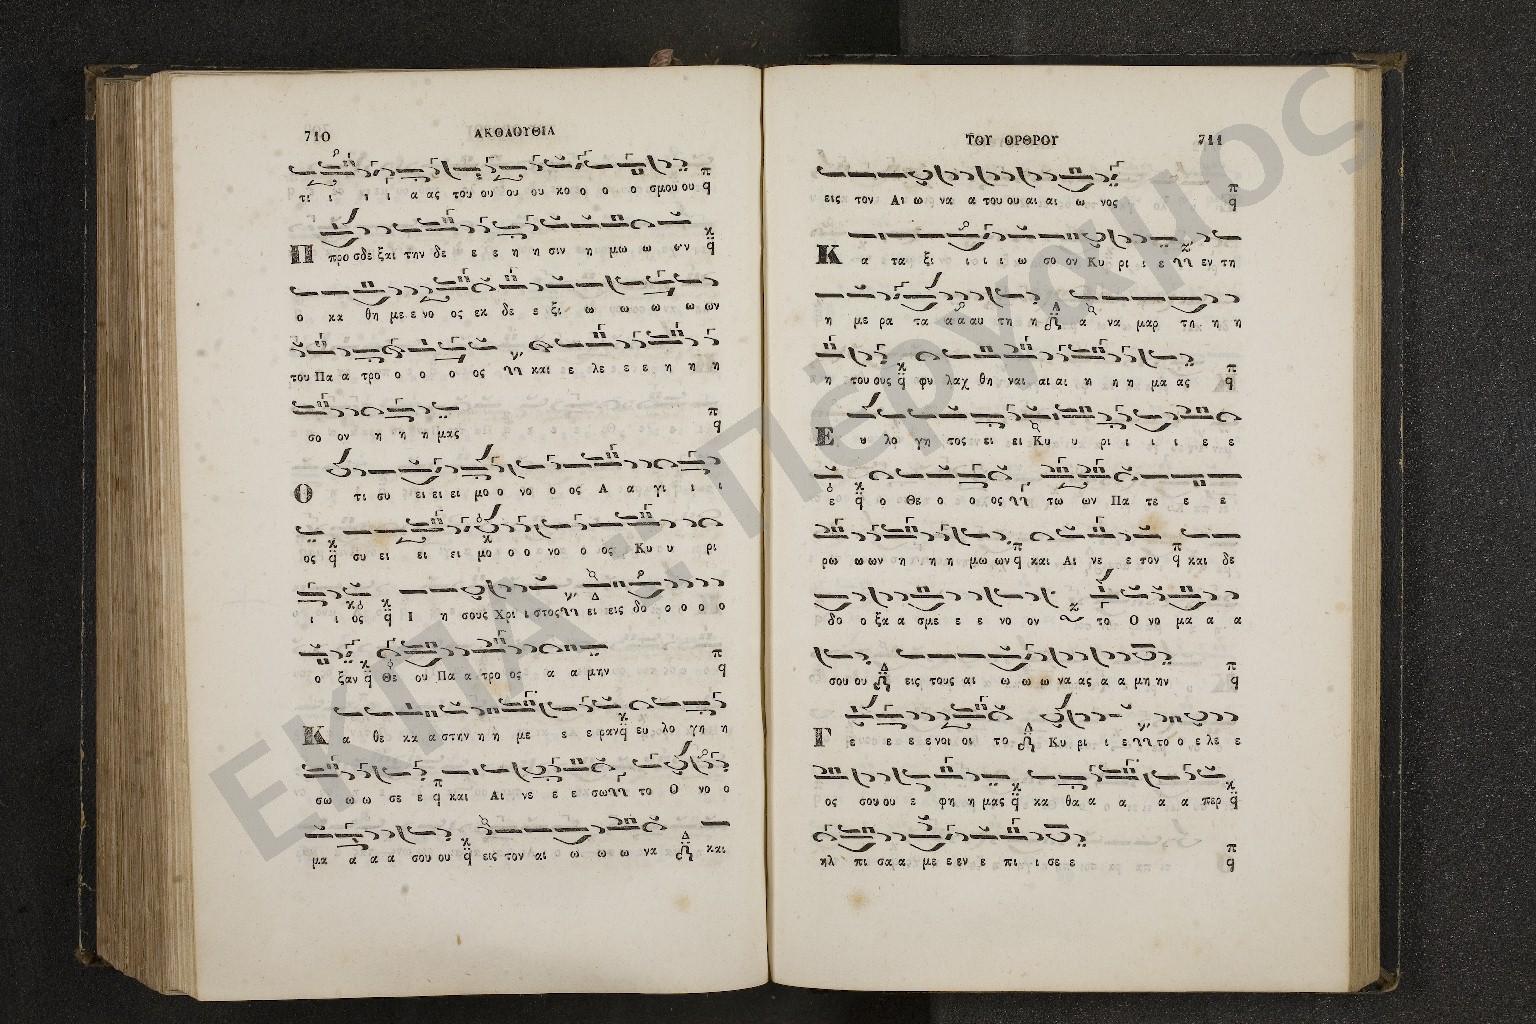 710
ΑΚΟΛΟΥΘΙΑ
τι ι ι ι α ας του ου ου ου κο ο ο ο σμου ου
Προσδεξαι την δε ε ε η η σιν η μω ω ων
ο κα θη με ε νο ος εκ δε ε ξι ω ω ω ω ων
του Πα α τρο ο ο ο ος και ε λε ε ε η η η
σο ον η η η μας
Ο τι συ ει ει ει μο ο νο ο ος Α α γι ι ι
ος συ ει ει ει μο ο ο νο ο ος Κυ υ ρι
ι ι ος Ι η σους Χρι ι στος ει εις δο ο ο ο ο
ο ξαν Θε ου Πα α τρο ος α α μην
Κα θε κα α στην η η με ε ε ραν ευ λο γη η
σω ω ω σε ε και Αι νε ε ε σω το Ο νο ο
μα α α α σου ου εις τον αι ω ω ω να και
ΤΟΥ ΟΡΘΡΟΥ
711
εις τον Αι ω να α του ου αι αι ω νος
Κα τα ξι ι ι ι ω σο ον Κυ ρι ι ε εν τη
η με ρα τα α α αυ τη η α να μαρ τη η η
η του ους φυ λαχ θη ναι αι αι η η η μα ας
Ευ λο γη τος ει ει Κυ υ ρι ι ι ι ε ε
ε ο Θε ο ο ος τω ων Πα τε ε ε
ρω ω ων η η η μω ων και Αι νε ε τον και δε
δο ο ξα α σμε ε ε νο ον το Ο νο μα α α
σου ου εις τους αι ω ω ω να ας α α μη ην
Γε ε ε ε νοι οι το Κυ ρι ι ε το ο ε λε ε
ος σου ου ε φη η μας κα θα α α α α περ
ηλ πι σα α με ε εν ε πι ι σε ε
ΕΚΠΑ - Πέργαμος